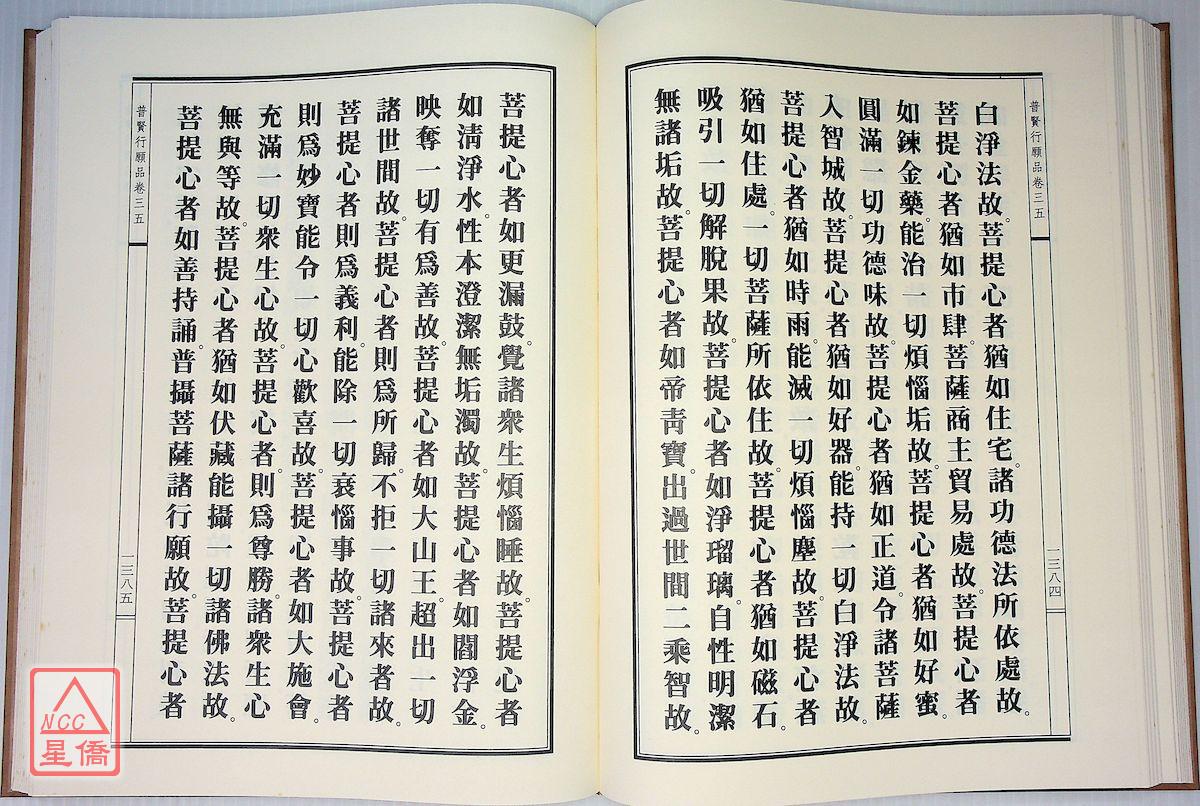 普賢行願品卷三五
一三八四
白淨法故。菩提心者猶如住宅。諸功德法所依處故。
菩提心者猶如市肆。菩薩商主貿易處故。菩提心者
如鍊金藥。能治一切煩惱垢故。菩提心者猶如好蜜。
圓滿一切功德味故。菩提心者猶如正道。令諸菩薩
入智城故。菩提心者猶如好器。能持一切白淨法故。
菩提心者猶如時雨。能滅一切煩惱塵故。菩提心者
猶如住處。一切菩薩所依住故。菩提心者猶如磁石。
吸引一切解脫果故。菩提心者如淨瑠璃。自性明潔
無諸垢故。菩提心者如帝靑寶。出過世間二乘智故。
菩提心者如更漏鼓。覺諸衆生煩惱睡故。菩提心者
如淸淨水。性本澄潔無垢濁故。菩提心者如閻浮金。
映奪一切有爲善故。菩提心者如大山王。超出一切
諸世間故。菩提心者則爲所歸。不拒一切諸來者故。
菩提心者則爲義利。能除一切衰惱事故。菩提心者
則爲妙寶。能令一切心歡喜故。菩提心者如大施會。
充滿一切衆生心故。菩提心者。則爲尊勝。諸衆生心
無與等故。菩提心者猶如伏藏。能攝一切諸佛法故。
菩提心者如善持誦。普攝菩薩諸行願故。菩提心者
普賢行願品卷三五
一三八五
NCC
星僑